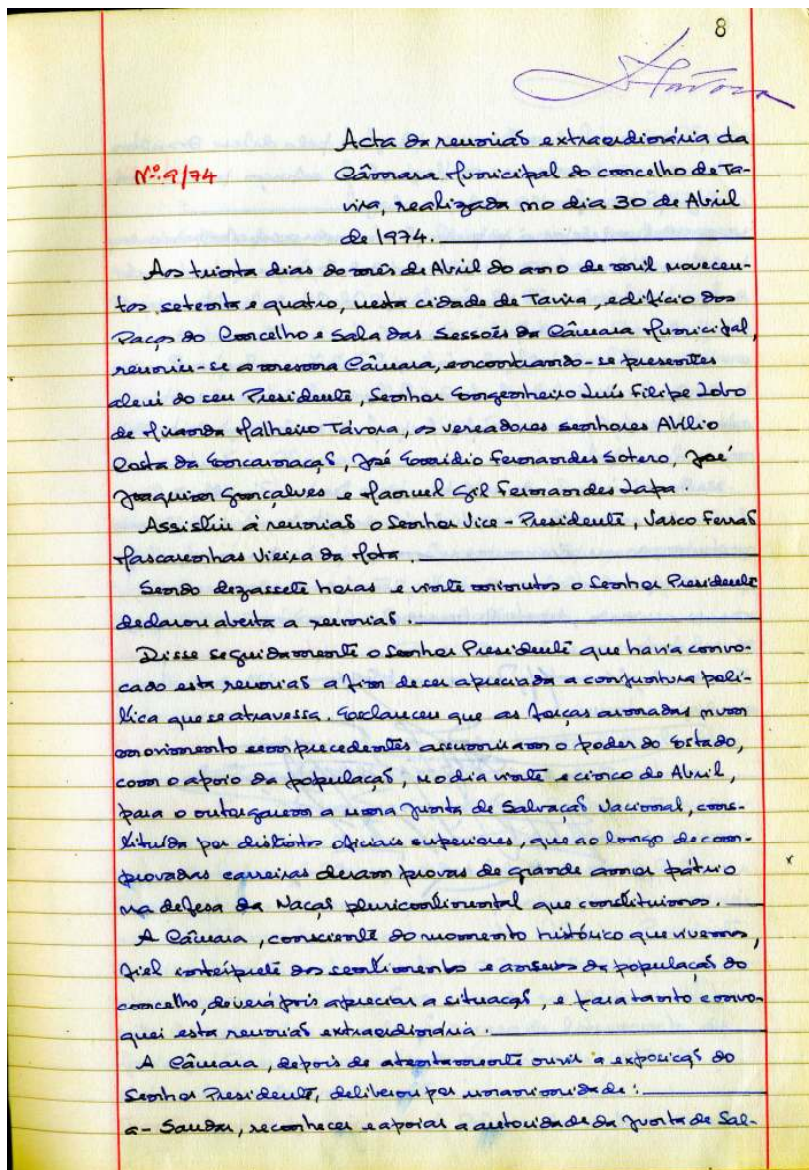 8
Távora
Acta da reunião extraordinária da
Nº.9/74
Câmara Municipal do concelho de Ta-
vira, realizada no dia 30 de Abril
de 1974.
Aos trinta dias do mês de Abril do ano de mil novecen-
tos setenta e quatro, nesta cidade de Tavira, edifício dos
Paços do Concelho e Sala das Sessões da Câmara Municipal,
reuniu-se a mesma Câmara, encontrando-se presentes
além do seu Presidente, Senhor Engenheiro Luís Filipe Lobo
de Miranda Malheiro Távora, os vereadores senhores Abílio
Costa da Encarnação, José Emídio Fernandes Sotero, José
Joaquim Gonçalves e Manuel Gil Fernandes Lapa.
Assistiu à reunião o Senhor Vice-Presidente, Vasco Ferrás
Mascarenhas Vieira da Mota.
Sendo dezassete horas e vinte minutos o Senhor Presidente
declarou aberta a reunião.
Disse seguidamente o Senhor Presidente que havia convo-
cado esta reunião a fim de ser apreciada a conjuntura polí-
tica que se atravessa. Esclareceu que as forças armadas num
movimento sem precedentes assumiram o poder do Estado,
com o apoio da população, no dia vinte e cinco de Abril,
para o outorgarem a uma Junta de Salvação Nacional, cons-
tituída por distintos oficiais superiores, que ao longo de com-
provadas carreiras deram provas de grande amor pátrio
na defesa da Nação pluricontinental que constituimos.
A Câmara, consciente do momento histórico que vivemos,
fiel intérprete dos sentimentos e anseios da população do
concelho, deverá pois apreciar a situação, e para tanto convo-
quei esta reunião extraordinária.
A Câmara, depois de atentamente ouvir a exposição do
Senhor Presidente, deliberou por unanimidade:
a- Saudar, reconhecer e apoiar a autoridade da Junta de Sal-